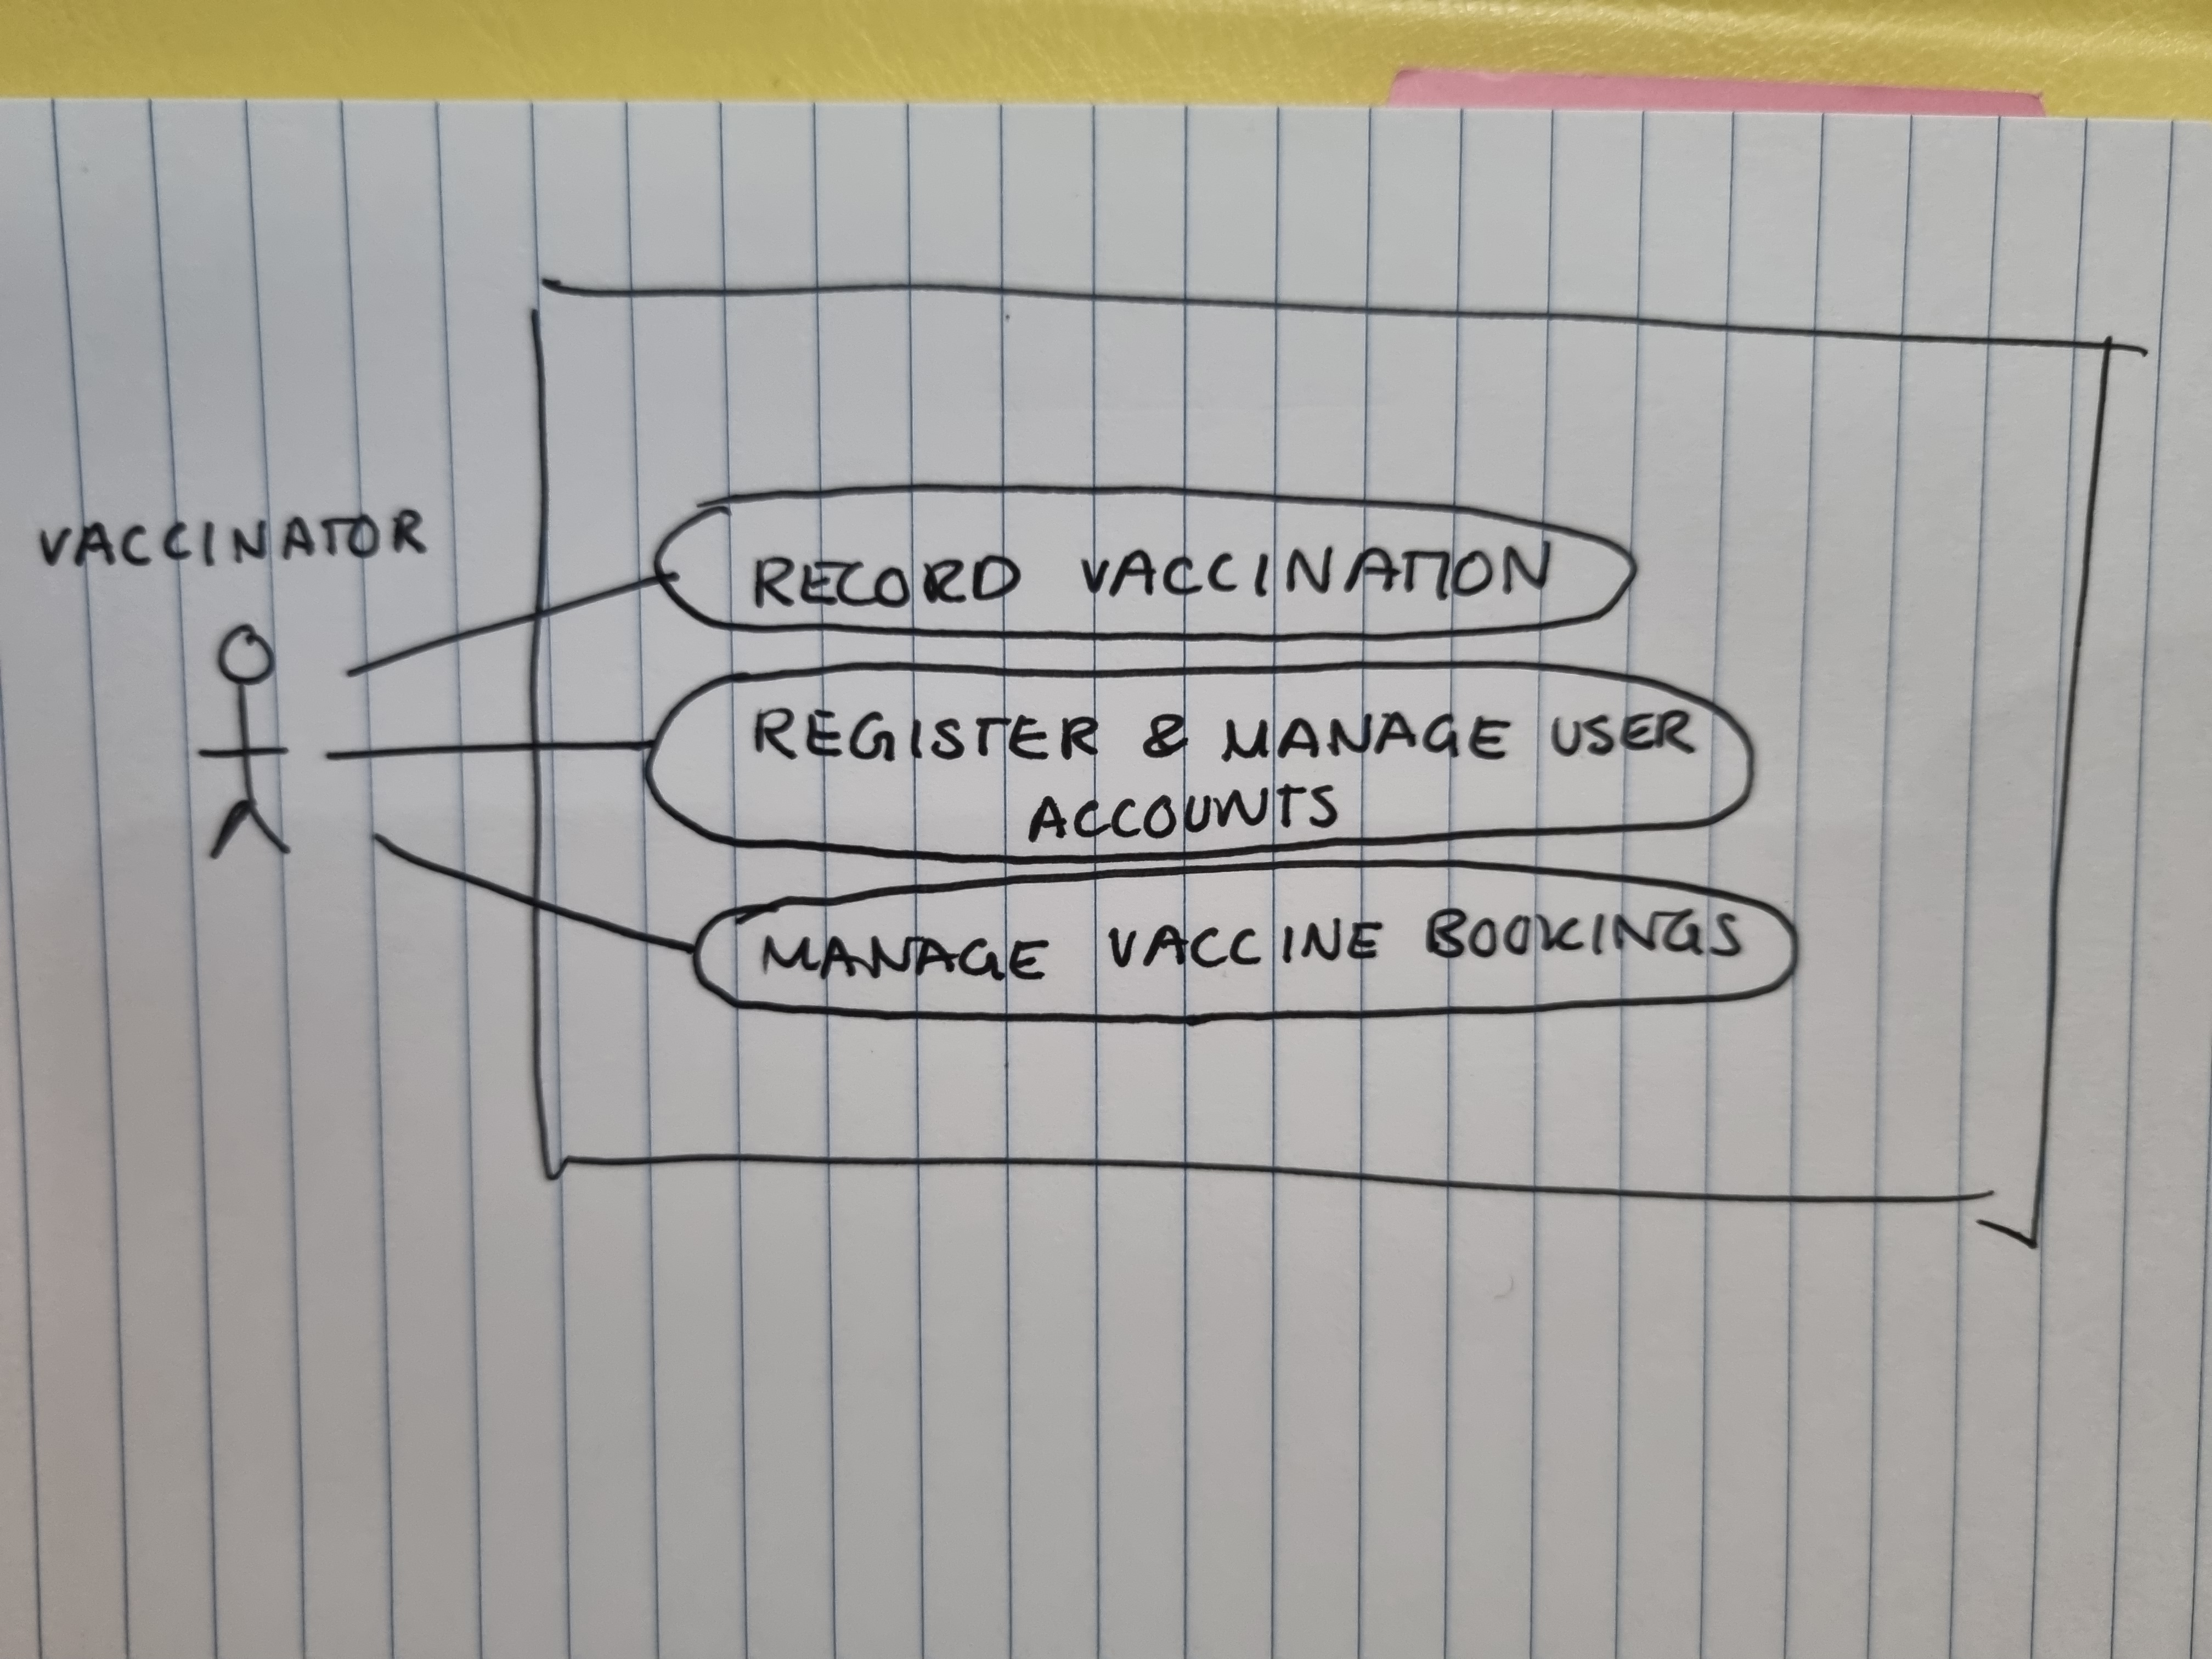 VACCINATOR
RECORD VACCINATION
REGISTER & MANAGE USER
ACCOUNTS
MANAGE VACCINE BOOKINGS